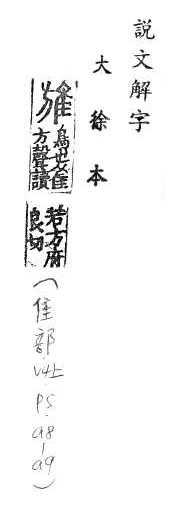 説文解字
大徐本
鳥也从隹
方聲讀
若方府
良切
(隹部 V4上 P5 a8-a9)